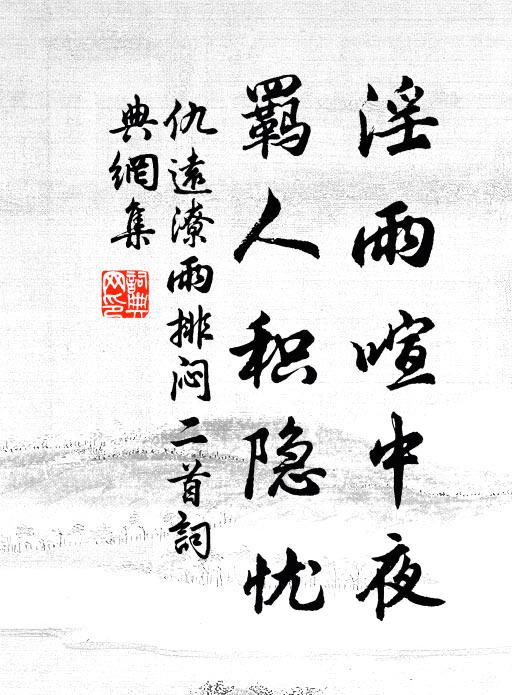 淫雨喧中夜
羁人积隐忧
仇远潦雨排闷二首詞
典網集
詞典
网印